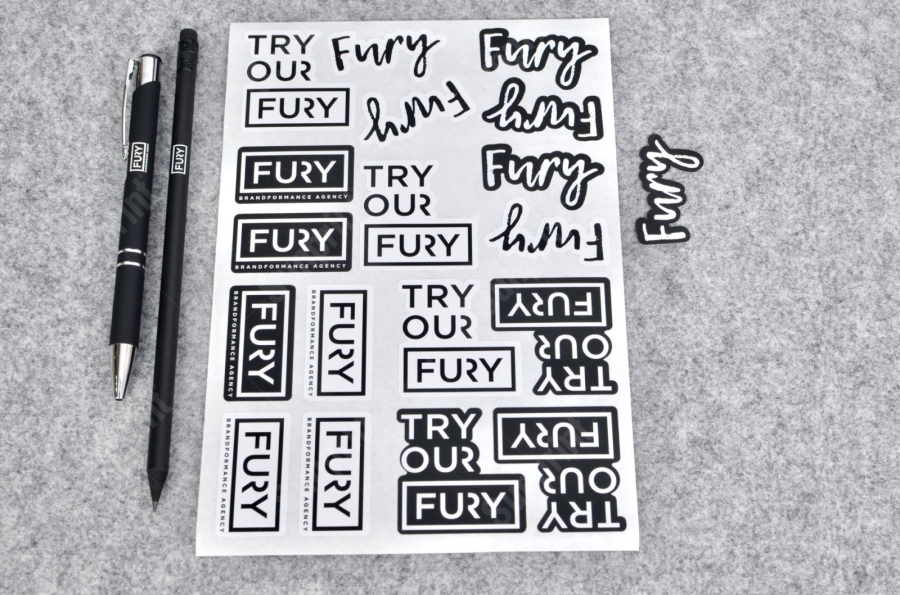 FURY
FURY
TRY
OUR
FURY
Fury
Fury
Fury
Fury
FURY
BRANDFORMANCE AGENCY
TRY
OUR
FURY
Fury
Fury
Fury
FURY
BRANDFORMANCE AGENCY
FURY
BRANDFORMANCE AGENCY
FURY
BRANDFORMANCE AGENCY
TRY
OUR
FURY
TRY
OUR
FURY
FURY
BRANDFORMANCE AGENCY
FURY
BRANDFORMANCE AGENCY
TRY
OUR
FURY
TRY
OUR
FURY